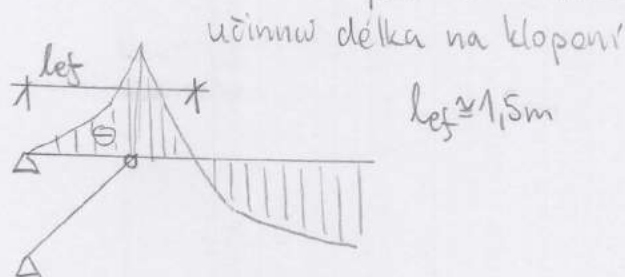 účinná délka na klopení
lef
lef ≅ 1,5m
⊖